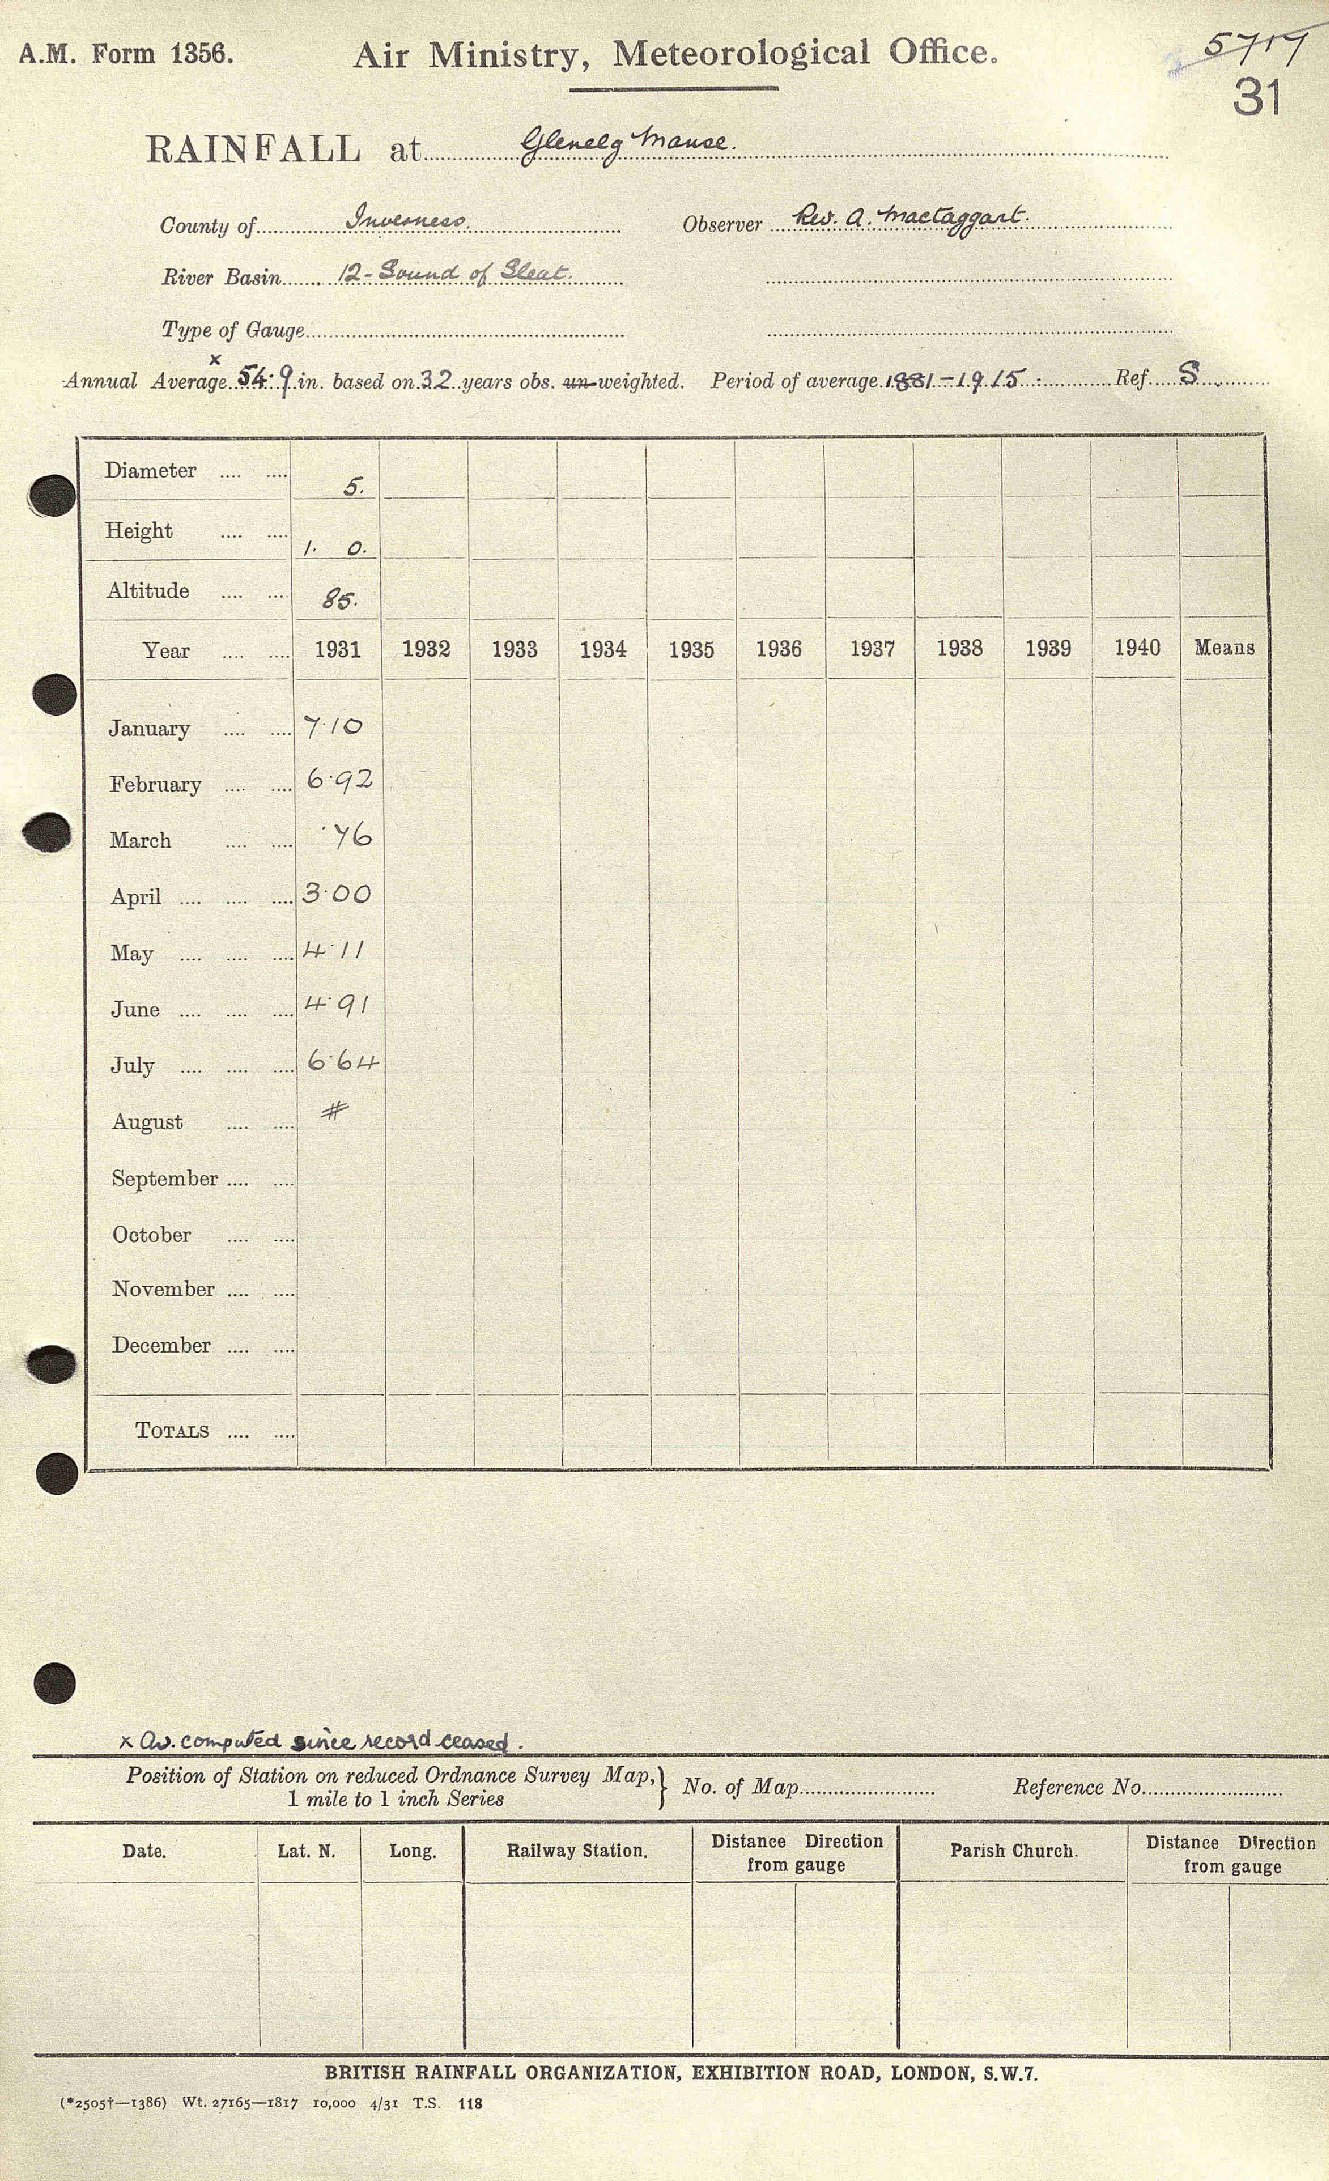 A.M. Form 1356. Air Ministry, Meteorological Office. 5717
31
RAINFALL at Glenelg Manse.
County of Inverness. Observer Rev. A. Mactaggart.
River Basin 12 - Sound of Sleat.
Type of Gauge
x
Annual Average 54.9 in. based on 32 years obs. un-weighted. Period of average 1881-1915. Ref. S.
Diameter .... .... 5.
Height .... .... 1. 0.
Altitude .... .... 85.
Year .... .... 1931 1932 1933 1934 1935 1936 1937 1938 1939 1940 Means
January .... .... 7.10
February .... .... 6.92
March .... .... .76
April .... .... .... 3.00
May .... .... .... 4.11
June .... .... .... 4.91
July .... .... .... 6.64
August .... .... #
September .... ....
October .... ....
November .... ....
December .... ....
TOTALS .... ....
x Av. computed since record ceased.
Position of Station on reduced Ordnance Survey Map,} No. of Map Reference No.
1 mile to 1 inch Series
Date. Lat. N. Long. Railway Station. Distance Direction from gauge Parish Church. Distance Direction from gauge
BRITISH RAINFALL ORGANIZATION, EXHIBITION ROAD, LONDON, S.W.7.
(*2505†—1386) Wt. 27165—1817 10,000 4/31 T.S. 118